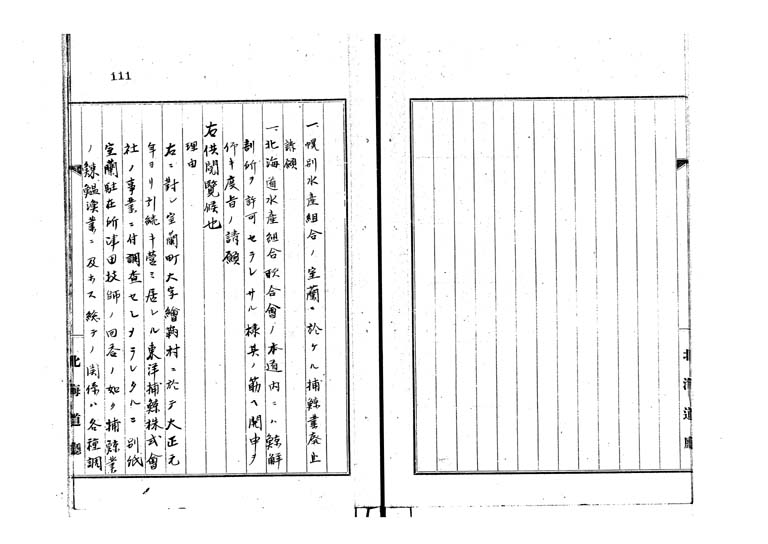 111
一、幌別水産組合ノ室蘭ニ於ケル捕鯨業廃止
請願
一、北海道水産組合聯合會ノ本道内ニハ鯨解
剖所ヲ許可セラレサル様其ノ筋ヘ開申ヲ
仰キ度旨ノ請願
右供閲覧候也
理由
右ニ對シ室蘭町大字繪鞆村ニ於テ大正元
年ヨリ引続キ営ミ居レル東洋捕鯨株式會
社ノ事業ニ付調査セシメラレタルニ別紙
室蘭駐在所津田技師ノ回答ノ如ク捕鯨業
ノ鰊鰮漁業ニ及ホス総テノ関係ハ各種調
北海道廳
北海道廳